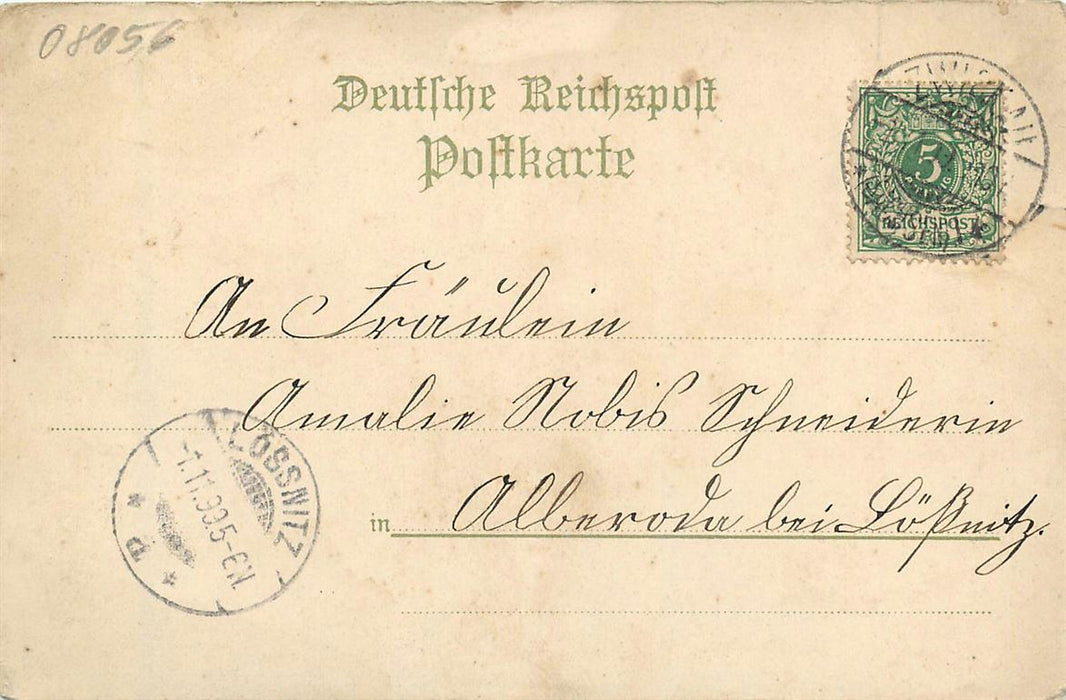 08056
Deutsche Reichspost
Postkarte
ZWICKAU
5
REICHSPOST
An Fräulein
Amalie Nobis Schneiderin
in Alberoda bei Lößnitz.
LÖSSNITZ
1.11.99.5-6N.